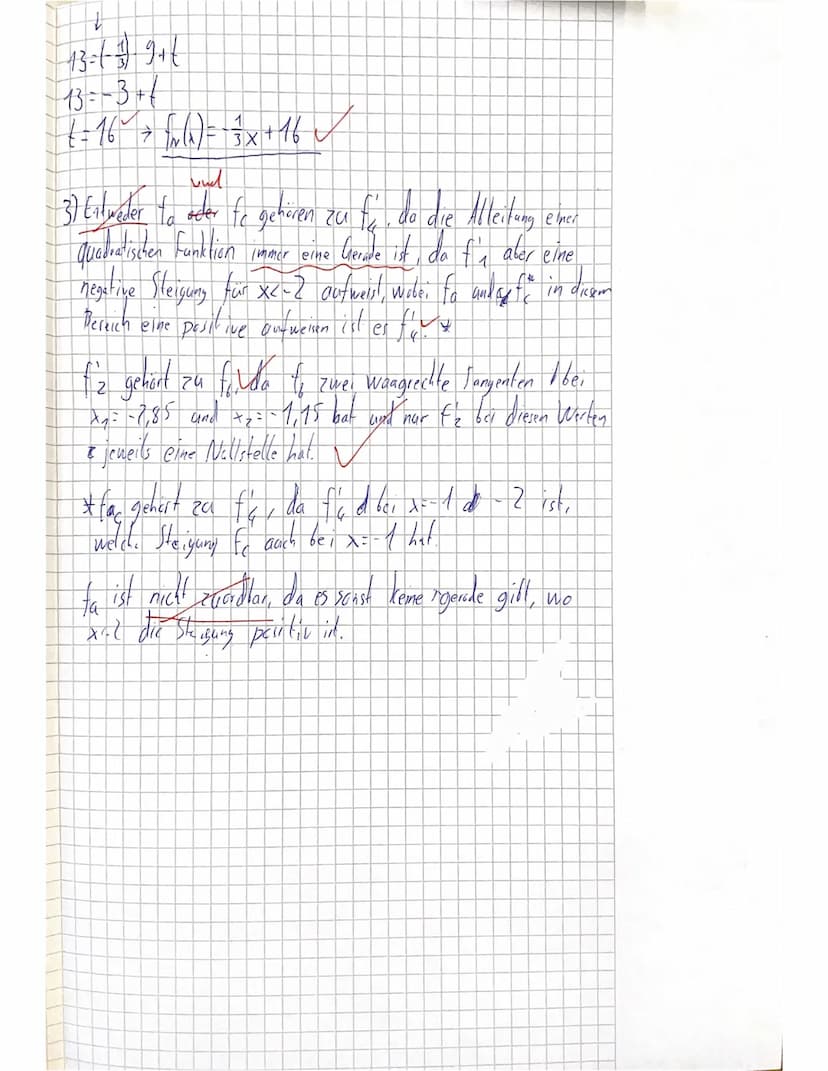 ↓
13=(-1/3)·9+t
13=-3+t
t=16 → fN(x)=-1/3x+16
und
3) Entweder fa oder fc gehören zu f'4, da die Ableitung einer
quadratischen Funktion immer eine Gerade ist, da f'1 aber eine
negative Steigung für x<-2 aufweist, wobei fa und fc* in diesem
Bereich eine positive aufweisen ist es f'4. *
f'2 gehört zu da fb zwei waagrechte Tangenten bei
x1=-2,85 und x2=-1,15 hat und nur f'2 bei diesen Werten
jeweils eine Nullstelle hat.
* gehört zu f'4, da f'4 bei x=-1 -2 ist,
welche Steigung fc auch bei x=-1 hat.
fa ist nicht da es sonst keine gibt, wo
die Steigung positiv ist.